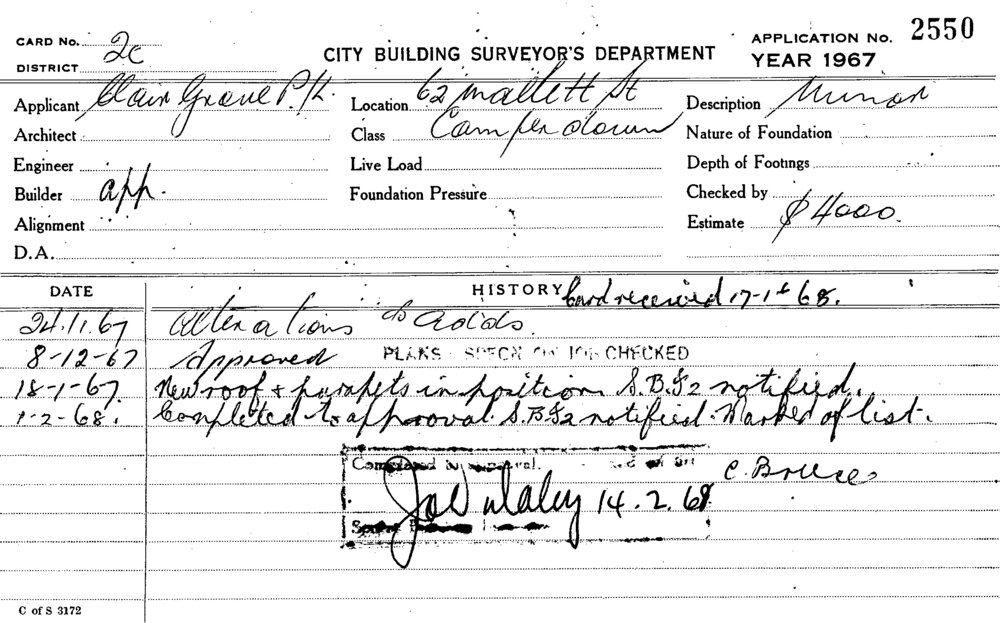 CARD No. 2c
DISTRICT
CITY BUILDING SURVEYOR'S DEPARTMENT
APPLICATION No. 2550
YEAR 1967
Applicant Clair Grove P/L.
Location 62 Mallett St
Description Minor
Architect
Class Camperdown
Nature of Foundation
Engineer
Live Load
Depth of Footings
Builder app.
Foundation Pressure
Checked by
Alignment
Estimate $4000.
D.A.
DATE
HISTORY Card received 17-1-68.
24.11.67 Alterations & Adds.
8-12-67 Approved PLANS SPECN ON JOB CHECKED
18-1-67. New roof & parapets in position S.B.I2 notified.
1-2-68. Completed to approval. S.B.I2 notified. Marked of list.
Completed to approval.
C. Bruce
14.2.68
C of S 3172